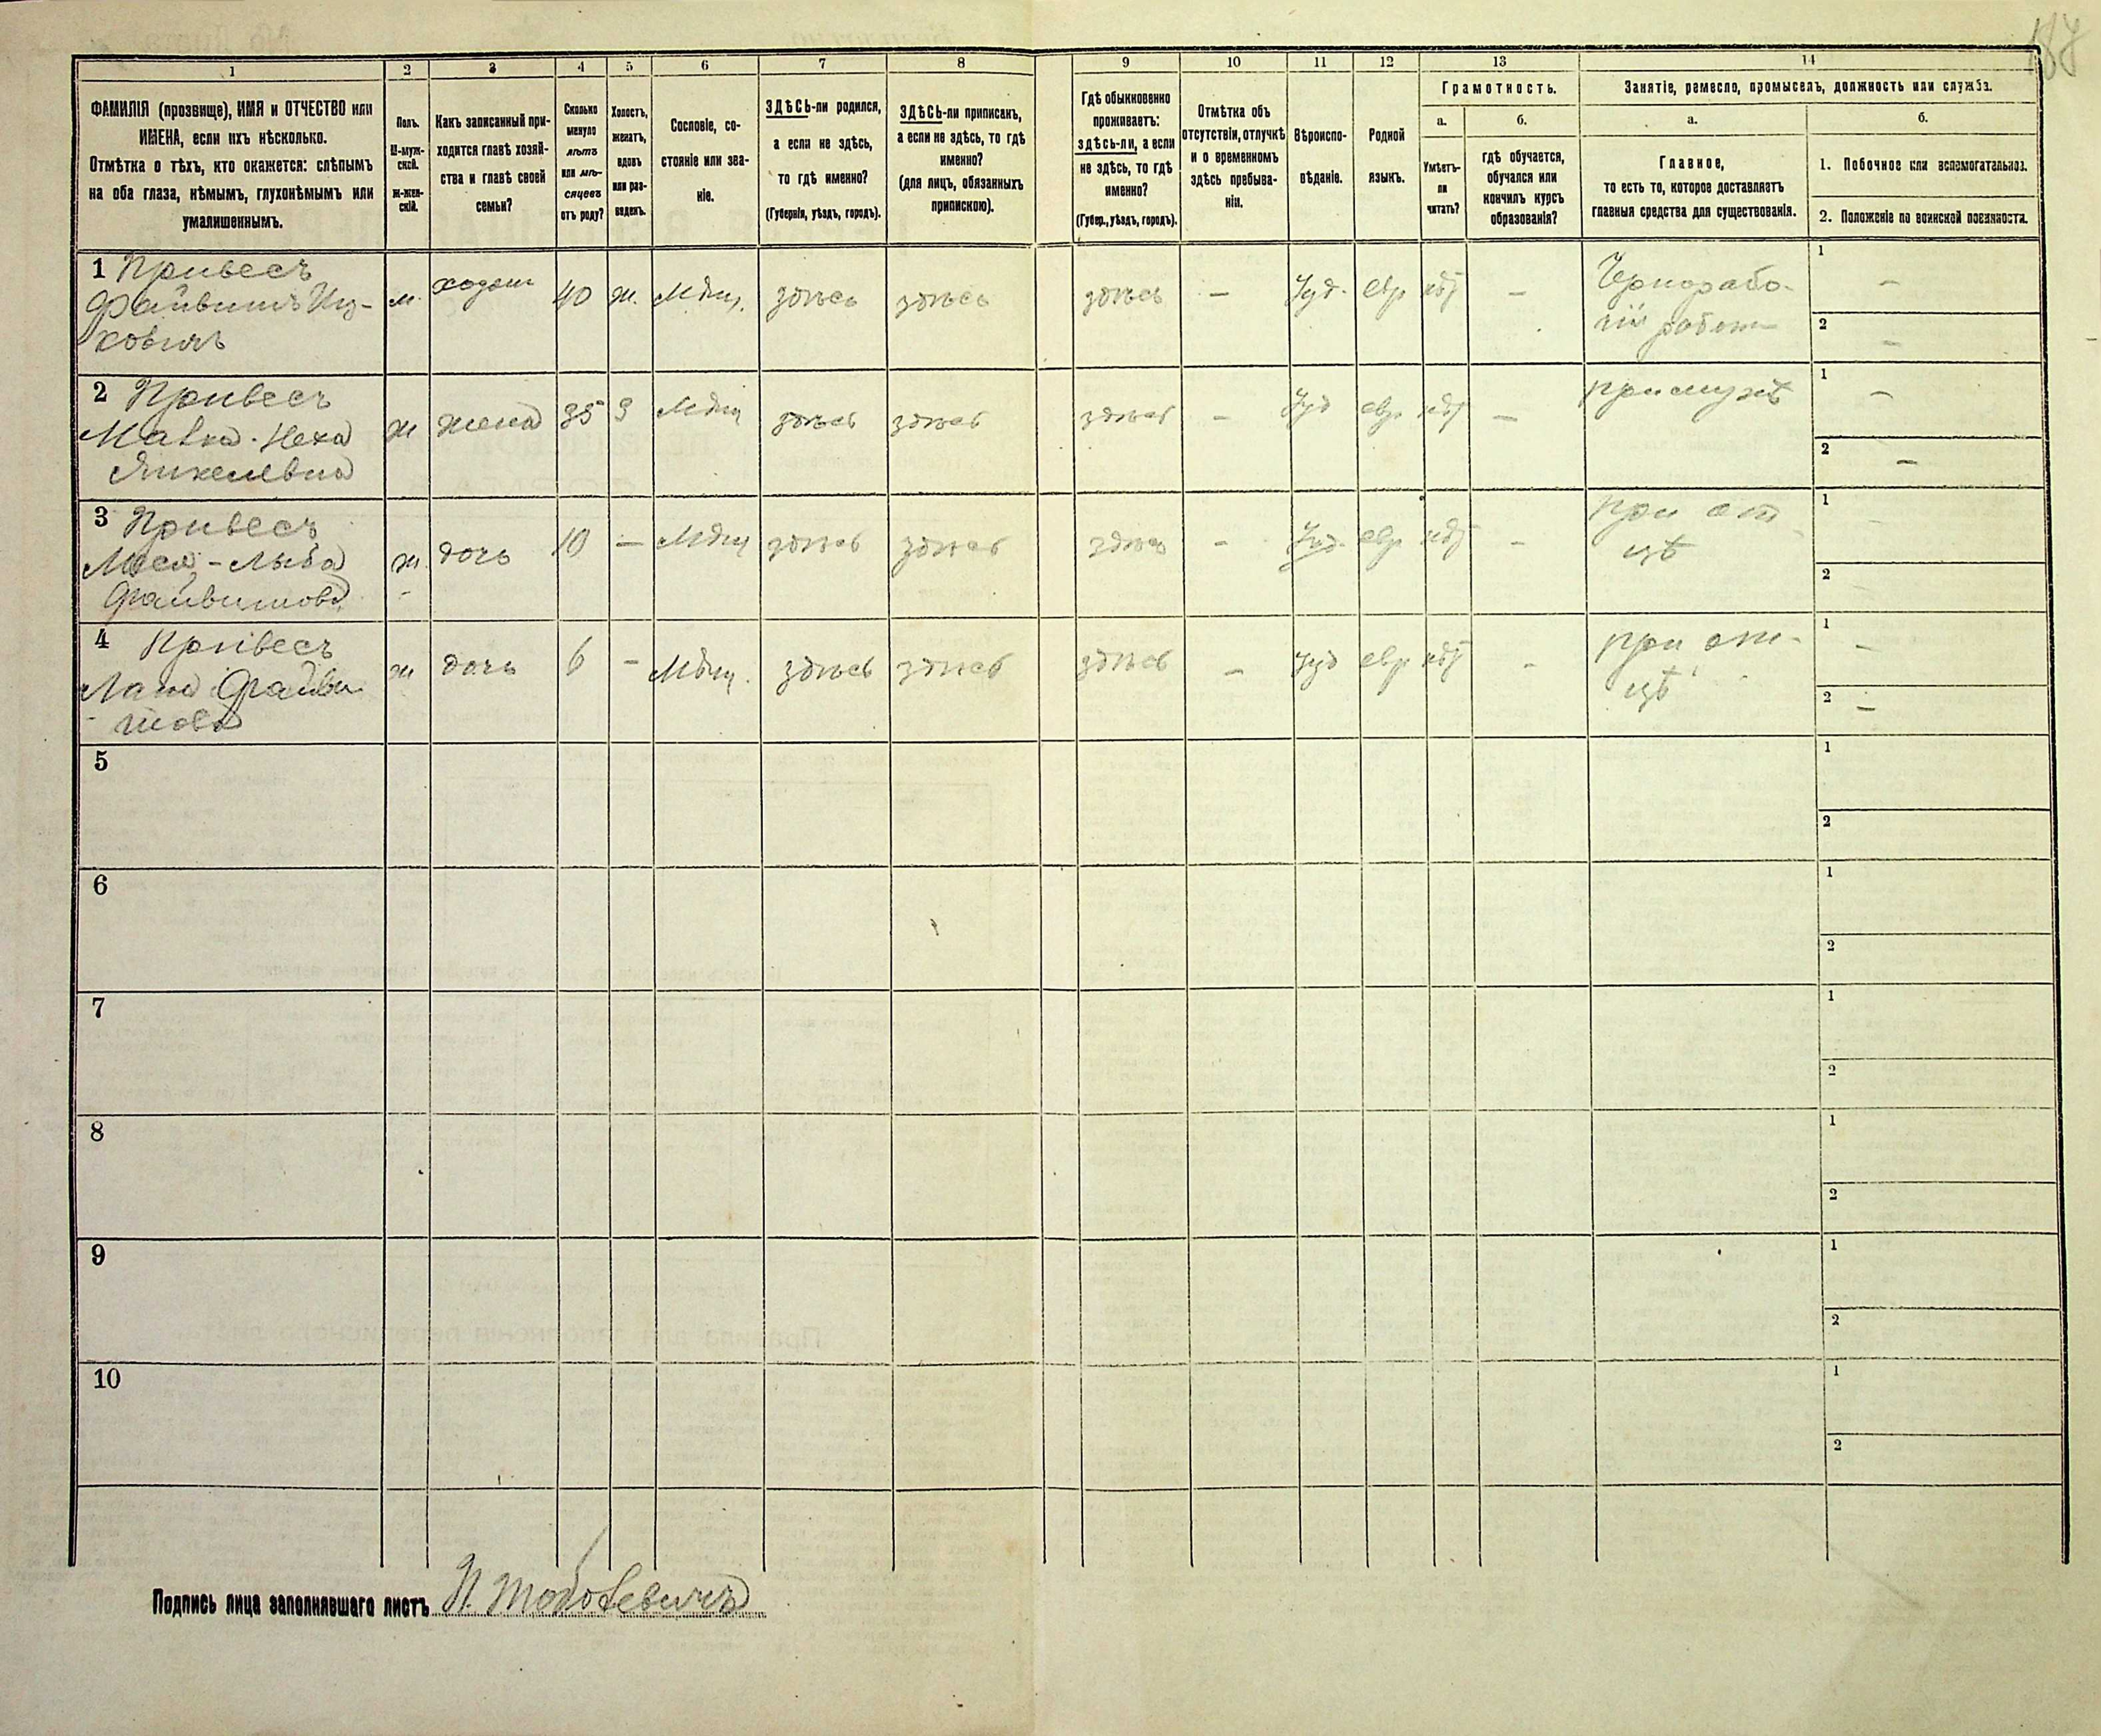 187
1
2
3
4
5
6
7
8
9
10
11
12
13
14
ФАМИЛІЯ (прозвище), ИМЯ и ОТЧЕСТВО или
ИМЕНА, если ихъ нѣсколько.
Отмѣтка о тѣхъ, кто окажется: слѣпымъ
на оба глаза, нѣмымъ, глухонѣмымъ или
умалишеннымъ.
Полъ.
М-муж-
ской.
Ж-жен-
скій.
Какъ записанный при-
ходится главѣ хозяй-
ства и главѣ своей
семьи?
Сколько
минуло
лѣтъ
или мѣ-
сяцевъ
отъ роду?
Холостъ,
женатъ,
вдовъ
или раз-
веденъ.
Сословіе, со-
стояніе или зва-
ніе.
ЗДѢСЬ-ли родился,
а если не здѣсь,
то гдѣ именно?
(Губернія, уѣздъ, городъ).
ЗДѢСЬ-ли приписанъ,
а если не здѣсь, то гдѣ
именно?
(для лицъ, обязанныхъ
припискою).
Гдѣ обыкновенно
проживаетъ:
здѣсь-ли, а если
не здѣсь, то гдѣ
именно?
(Губер., уѣздъ, городъ).
Отмѣтка объ
отсутствіи, отлучкѣ
и о временномъ
здѣсь пребыва-
ніи.
Вѣроиспо-
вѣданіе.
Родной
языкъ.
Грамотность.
а.
Умѣетъ-
ли
читать?
б.
гдѣ обучается,
обучался или
кончилъ курсъ
образованія?
Занятіе, ремесло, промыселъ, должность или служба.
а.
Главное,
то есть то, которое доставляетъ
главныя средства для существованія.
б.
1. Побочное или вспомогательное.
2. Положеніе по воинской повинности.
1 Привесъ
Файвишъ Иц-
ковичъ
м.
хозяин
40
ж.
Мѣщ.
здѣсь
здѣсь
здѣсь
—
Іуд.
евр
нѣт
—
Чернорабо-
чій
1 —
2 —
2 Привесъ
Малка-Неха
Янкелевна
ж
жена
35
З
Мѣщ
здѣсь
здѣсь
здѣсь
—
Іуд
евр
нѣт
—
при мужѣ
1 —
2 —
3 Привесъ
-Лыба
Файвишова
ж.
дочь
10
—
Мѣщ
здѣсь
здѣсь
здѣсь
-
Іуд.
евр
нѣт
-
при от-
цѣ
1
2
4 Привесъ
Файви-
шова
ж
дочь
6
-
Мѣщ.
здѣсь
здѣсь
здѣсь
-
Іуд
евр
нѣт
-
при от-
цѣ
1 —
2 —
5
1
2
6
1
2
7
1
2
8
1
2
9
1
2
10
1
2
Подпись лица заполнявшаго листъ